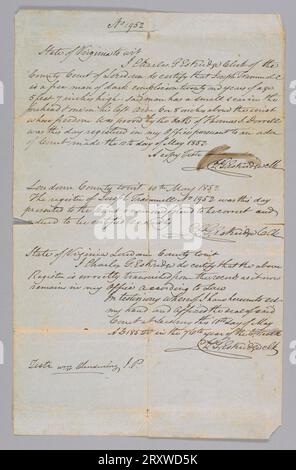 No 1952
State of Virginia to wit
I Charles G Eskridge Clerk of the
County Court of Loudoun do certify that Joseph Trammell
is a free man of dark complexion twenty one years of age
5 feet 7 inches high said man has a small scar in the
forehead one on his left
whose freedom was proved by the oath of Thomas
was this day registered in my Office pursuant to an order
of Court made the 10th day of May 1852
A copy Teste
Ch G Eskridge Clk
Loudoun County to wit 10th May 1852
The register of Joseph Trammell No 1952 was this day
presented to the Court and to be correct and
ordered to be certified accordingly
Ch G Eskridge Clk
State of Virginia Loudoun County to wit
I Charles G Eskridge do certify that the above
Register is correctly transcribed from the record as it now
remains in my Office according to law
In testimony whereof I have hereunto set
my hand and affixed the seal of said
Court at Leesburg this 10th day of May
AD 1852 in the 76th year of the
Ch G Eskridge Clk
Teste J.P.
alamy
Image ID: 2RXWD5K
www.alamy.com